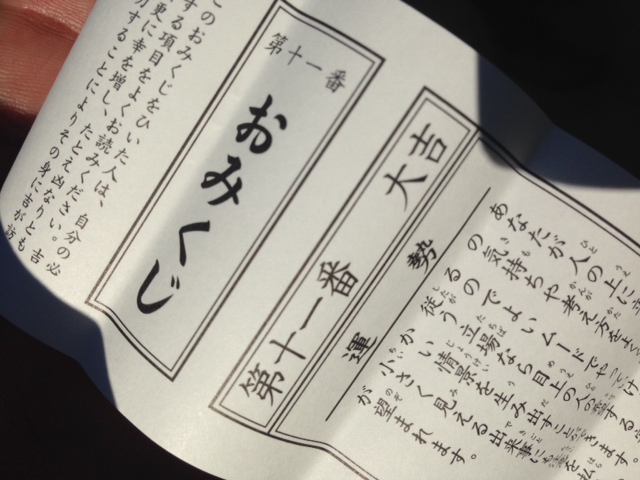 第十一番
おみくじ
このおみくじをひいた人は、自分の
する項目をよくお読みください。必
更に幸を増し、たとえ凶なりとも吉
力することによりその身に吉が訪
大吉
第十一番
運勢
あなたが人の上に
の気持ちや考え方をよ
るのでよいムードで
従う立場なら目上の人の
かい情景を生み出すことができます。
小さく見える出来事にも
が望まれます。